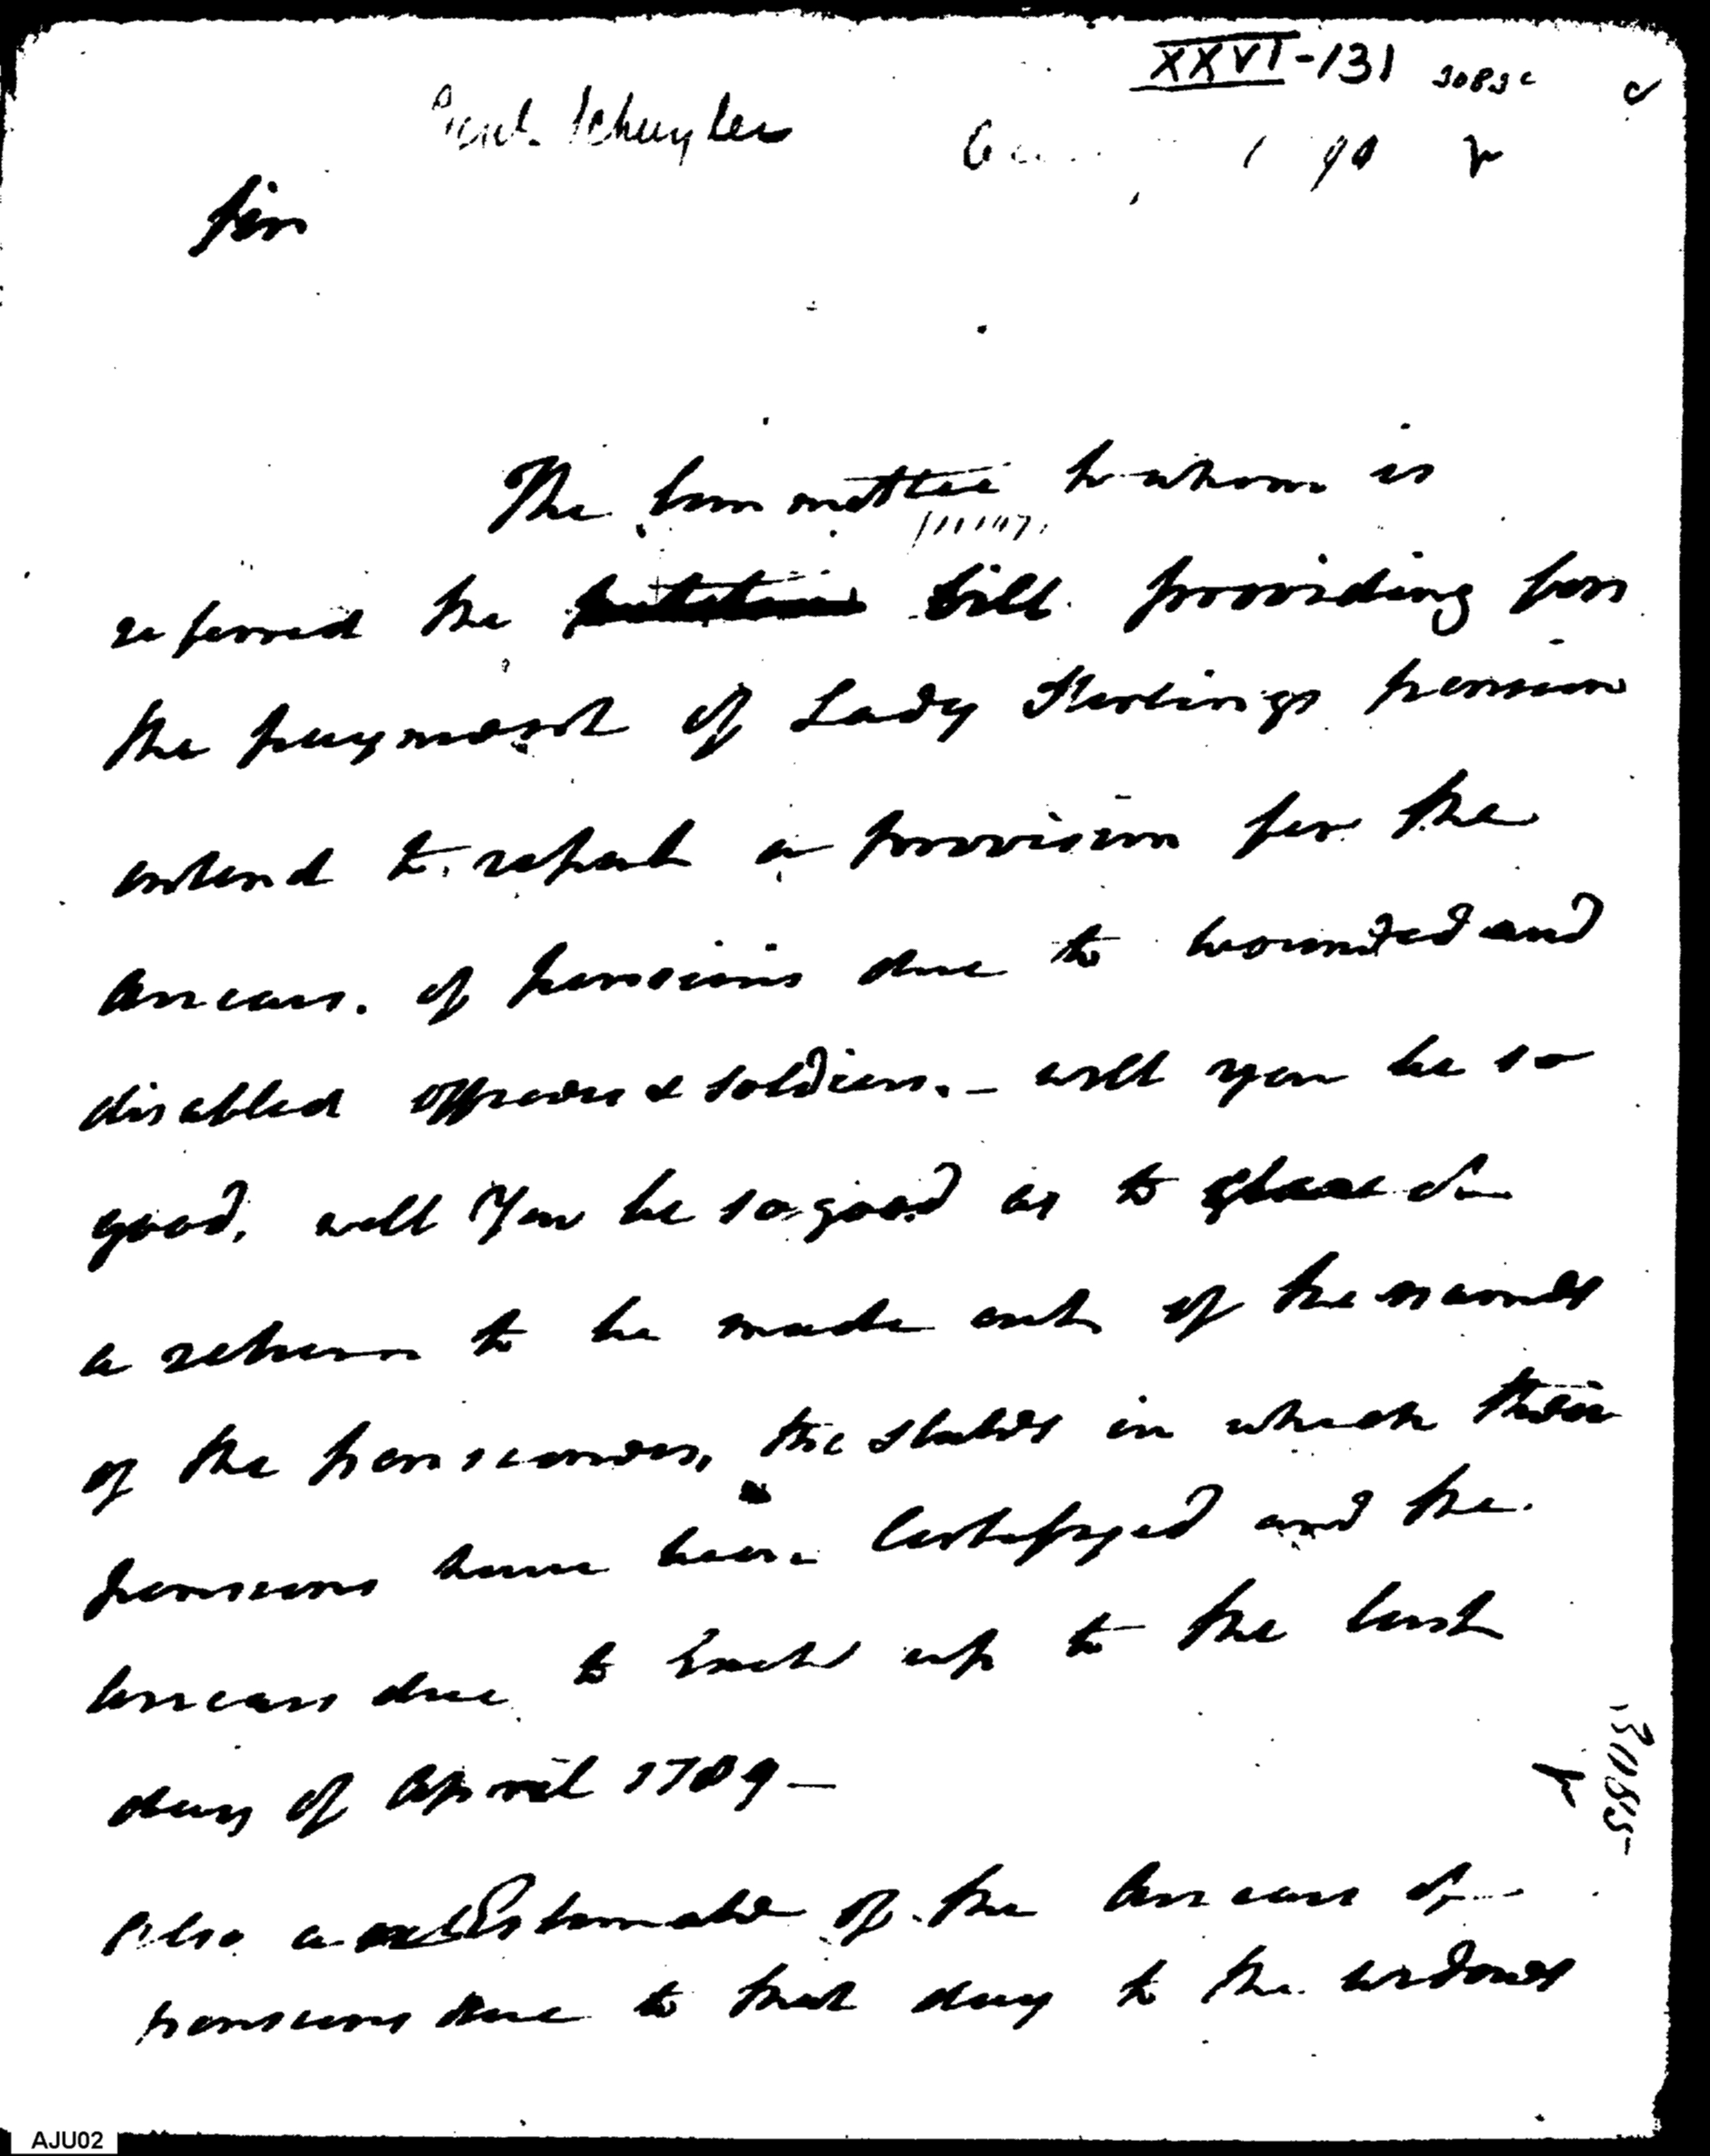 XXVI-131
Schuyler
Sir
The Committee to whom is
referred the bill providing for
the payment of Lady Sterlings pension
intend to report a provision for the
arrears. of pensions due to wounded and
disabled officers & soldiers. - will you be so
good, will You be so good as to
a return to be made out of the names
of the pensioners, the states in which their
pensions have been Certifyed and the
arrears due to Each up to the last
day of April 1789 -
Also a Estimate of the arrears of
pensions due to that day to the widows
AJU02